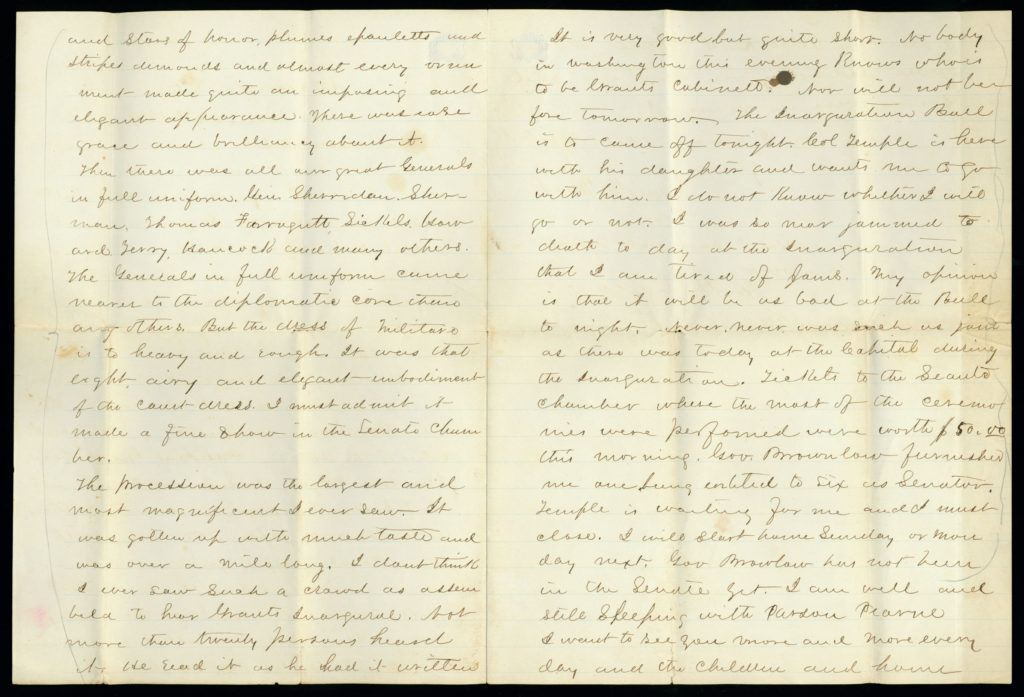 and Stars of honor, plumes epauletts and
stripes dimonds and almost every orna
ment made quite an imposing and
elegant appearance. There was ease
grace and brilliancy about it.
Then there was all our great Generals
in full uniform. Gen Sherridan, Sher-
man, Thomas Farragutt, Sickels, How
ard, Terry, Hancock and many others.
The Generals in full uniform came
nearer to the diplomatic core than
any others. But the dress of Military
is to heavy and rough. It was that
light, airy and elegant imbodiment
of the court dress. I must admit it
made a fine show in the Senate Cham
ber.
The procession was the largest and
most magnificent I ever saw. It
was gotten up with much taste and
was over a mile long. I dont think
I ever saw such a crowd as assem
beld to hear Grants Inaugural. Not
more than twenty persons heard
it. He read it as he had it written
It is very good but quite short. No body
in washington this evening Knows who is
to be Grants Cabinett. Nor will not be
fore tomorrow. The Inauguration Ball
is to come off tonight. Col Temple is here
with his daughter and wants me to go
with him. I do not Know whether I will
go or not. I was so near jammed to
death to day at the Inauguration
that I am tired of Jams. My opinion
is that it will be as bad at the Ball
to night. Never, never was such as jam
as there was today at the Capital during
the Inauguration. Tickets to the Senate
chamber where the most of the ceremo
nies were performed were worth $50.00
this morning. Gov. Brownlow furnished
me one being entitled to six as Senator.
Temple is waiting for me and I must
close. I will start home Sunday or Mon
day next. Gov Browlow has not been
in the Senate yet. I am well and
still Sleeping with Parson Pearne
I want to see you more and more every
day and the children and home